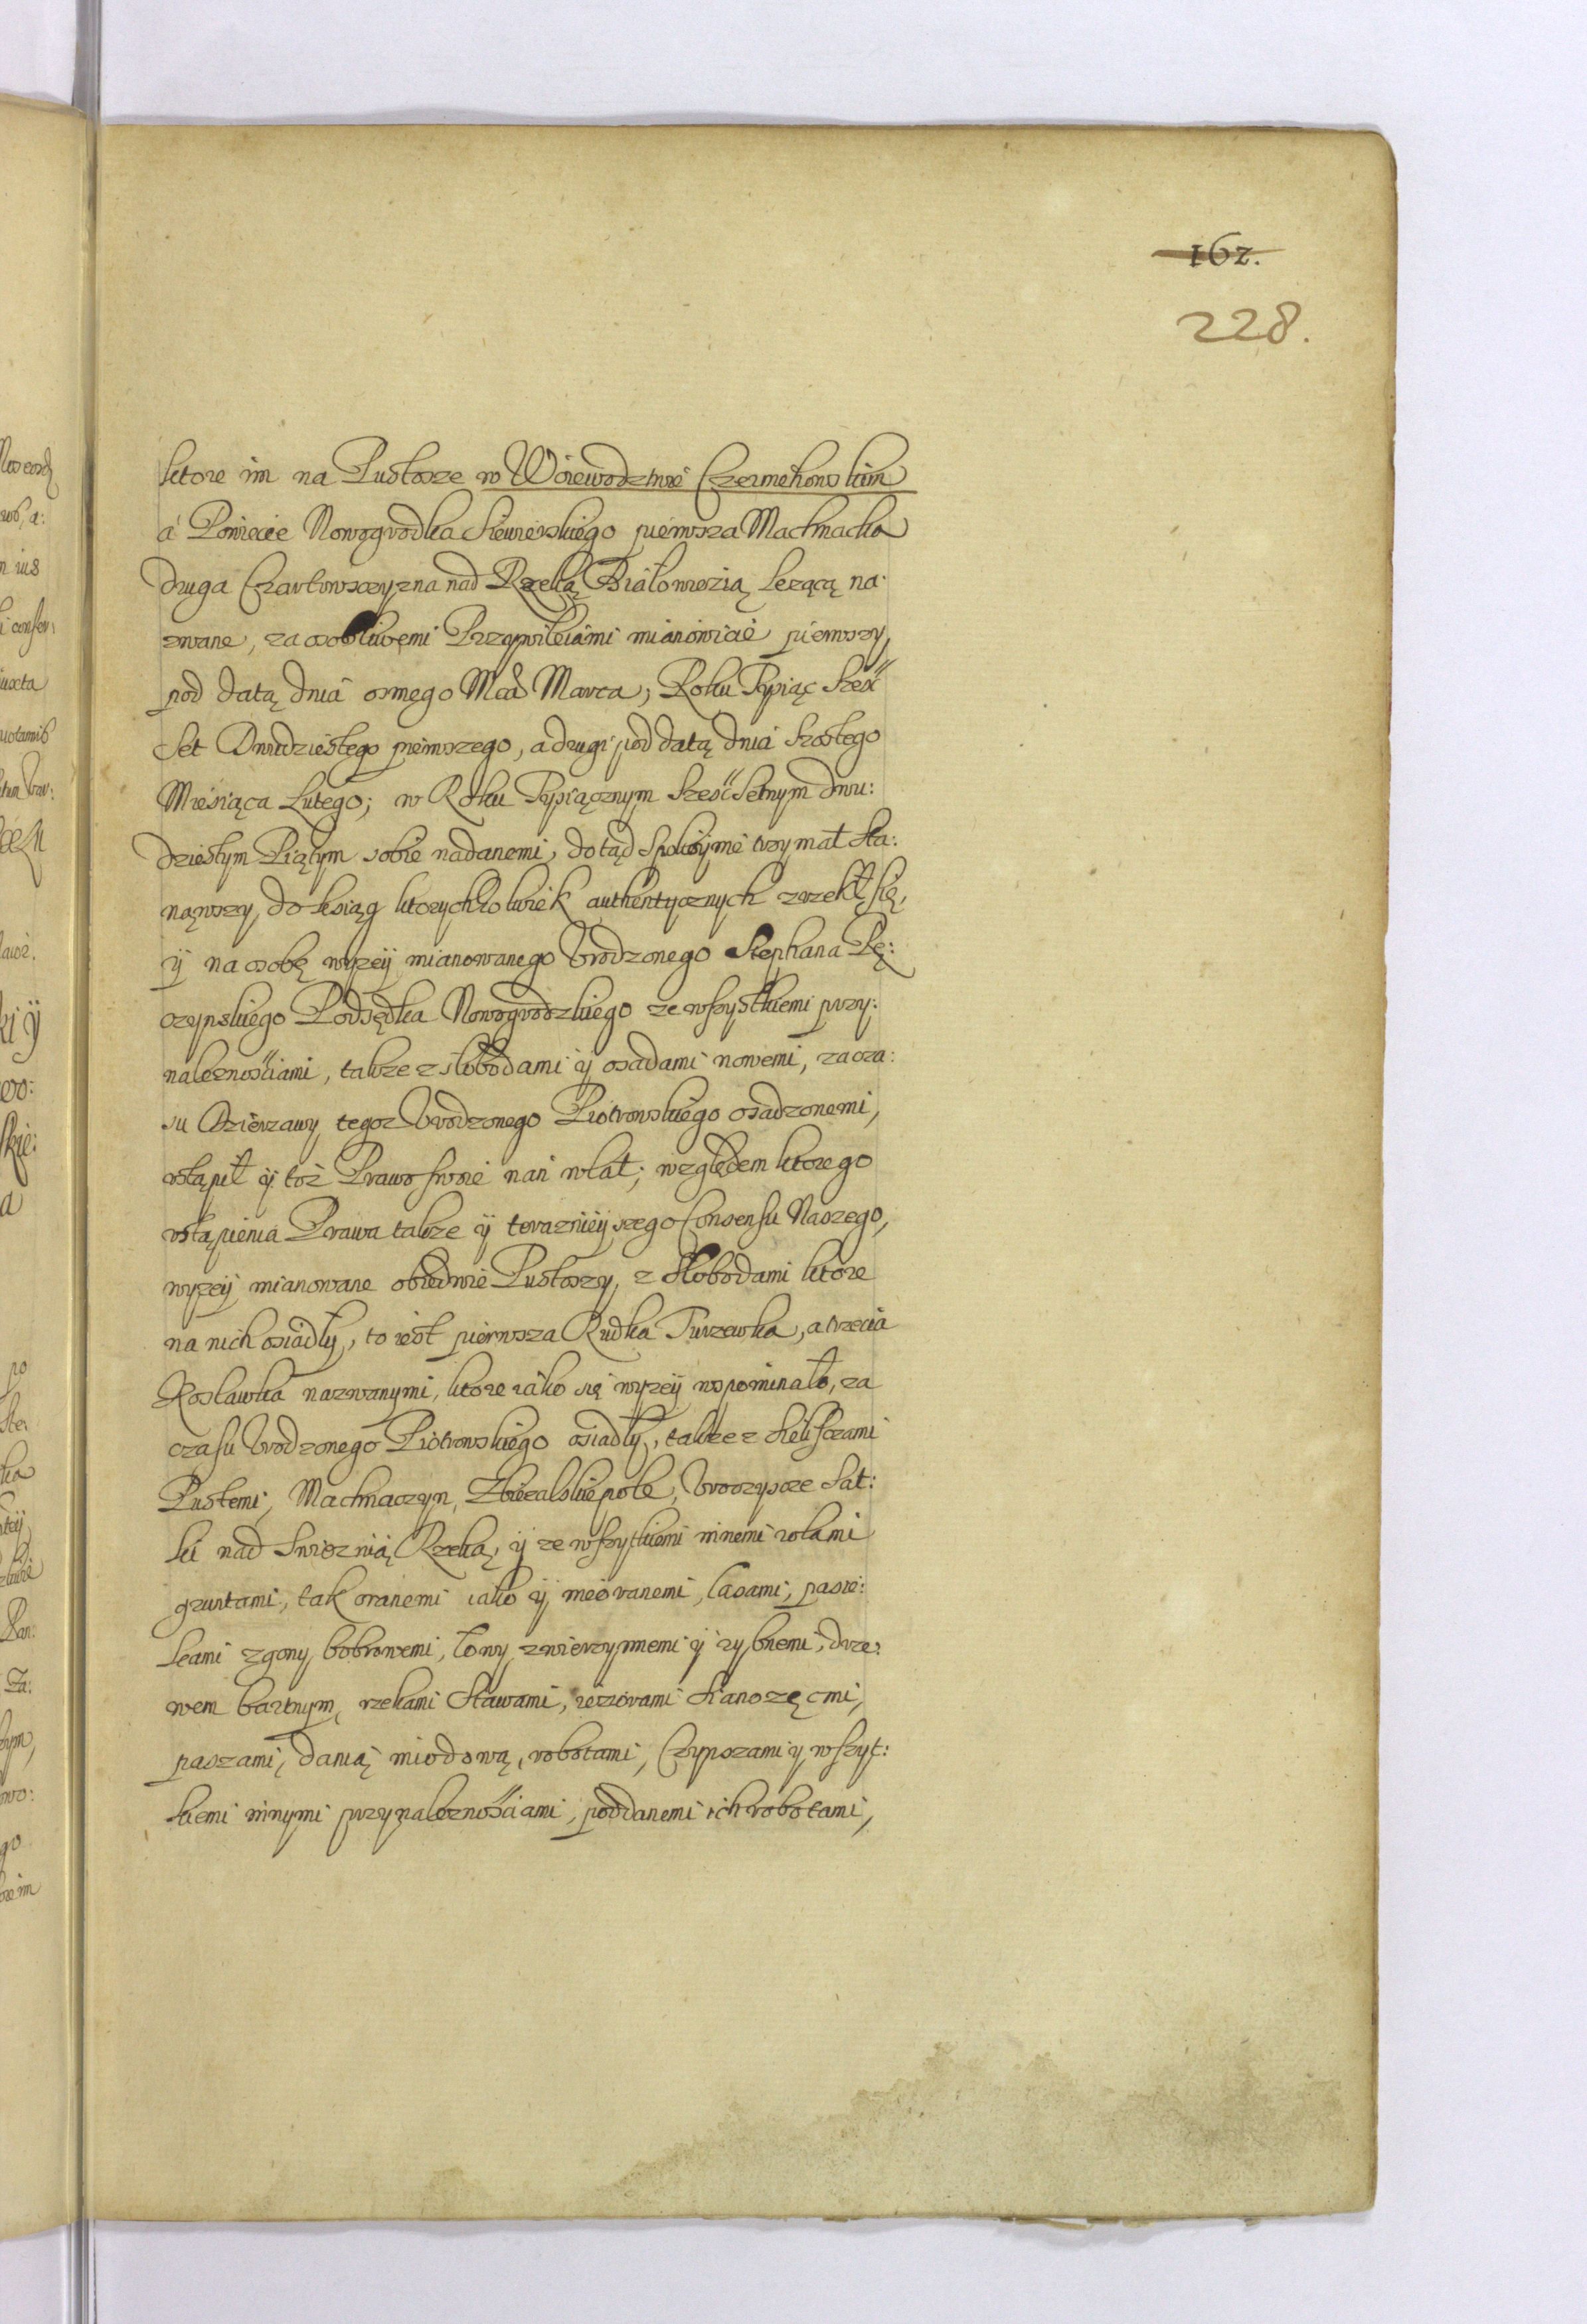 162.
228.
ktore im na Pustosze w Woiewodztwie Czerniehowskim
á Powiecie Nowogrodka Siewierskiego pierwsza Machnacka
druga Czartowszczyzna nad Rzeką Białowieżią Leżącą na:
zwane, za osobliwemi Przywileiami mianowicie pierwszy,
pod datą dnia osmego Mca Marca, Roku Tysiąc Sześć
Set Dwudziestego pierwszego, a drugi pod datą dnia szostego
Miesiąca Lutego; w Roku Tysiącznym Sześćsetnym dwu:
dziestym Piątym sobie nadanemi, dotąd spokoynie trzymał sta:
nąwszy, do ksiąg ktorychkolwiek authentycznych zrzekł się,
ÿ na osobę wyzeÿ mianowanego Vrodzonego Stephana Pę:
czynskiego Podsędka Nowogrodzkiego ze wszystkiemi przy:
należnościami, takze z słobodami ÿ osadami nowemi, za cza:
su Dzierzawy tegoz Vrodzonego Piotrowskiego osadzonemi,
vstąpił ÿ toż Prawo swoie nań wlał; względem ktorego
vstąpienia Prawa takze ÿ terazniéyszego Consensu Naszego,
wyzeÿ mianowane obiedwie Pustoszy, z Słobodami ktore
na nich osiadły, to iest pierwsza Rudka Turzewka, a trzecia
Rosławka nazwanymi, ktore iako się wyzeÿ wspominało, za
czasu Vrodzonego Piotrowskiego osiadły, takze z Sieliszczami
Pustemi, Machnaczyn, Zbieralskie pole, Vroczyscze Sat:
ki nad Swieznią Rzeką, ÿ ze wszytkiemi innemi rolami
gruntami, tak oranemi iako ÿ nieoranemi, lasami, pasie:
kami zgony bobrowemi, łowy zwierzynnemi ÿ rybnemi, drze:
wem bartnym, rzekami stawami, ieziorami Sianozęcmi,
paszami, danią miodową, robotami, Czynszami y wszyt:
kiemi innymi przynależnościami, poddanemi ich robotami,